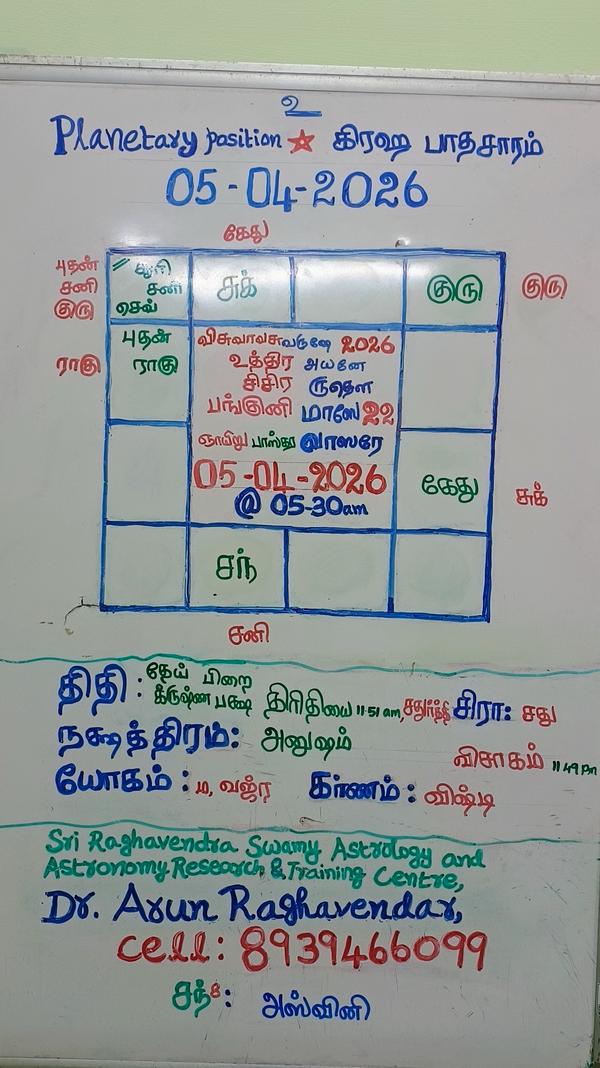 உ
Planetary position ☆ கிரஹ பாதசாரம்
05-04-2026
கேது
புதன்
சனி
குரு
சூரி
சனி
செவ்
சுக்
குரு
குரு
ராகு
புதன்
ராகு
விசுவாவசுவருஷே 2026
உத்திர அயனே
சிசிர ருதௌ
பங்குனி மாஸே 22
ஞாயிறு பாஸ்கர வாஸரே
05-04-2026
@ 05-30am
கேது
சுக்
சந்
சனி
திதி : தேய் பிறை
கிருஷ்ண பக்ஷ திரிதியை 11-51 am, சதுர்த்தி சிரா: சது
நக்ஷத்திரம்: அனுஷம்
விசாகம் 11 49 Pm
யோகம் : ம, வஜ்ர கரணம் : விஷ்டி
Sri Raghavendra Swamy Astrology and
Astronomy Research & Training Centre,
Dr. Arun Raghavendar,
cell: 8939466099
அஸ்வினி